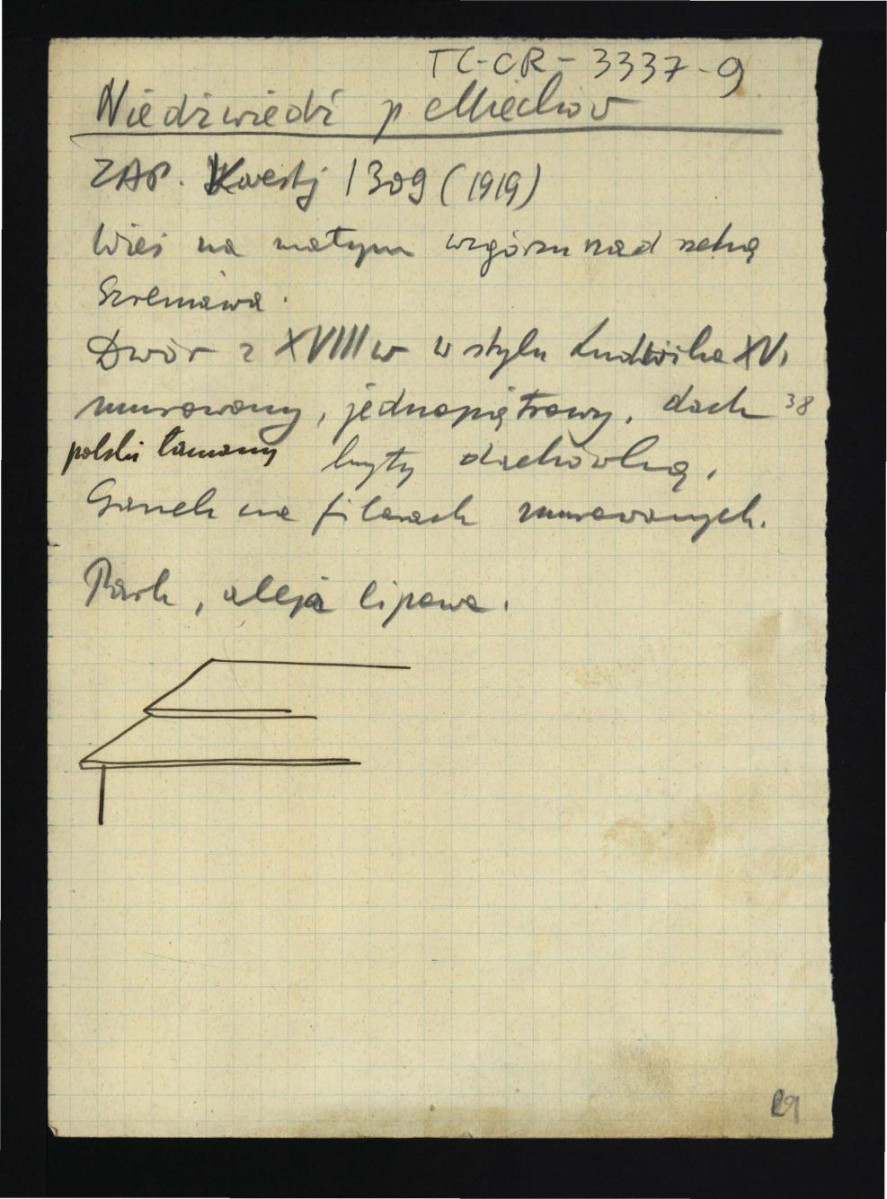 TC-CR-3337-9
Niedźwiedź p Miechów
ZAP. Kwestj 1309 (1919)
Wieś na małym wzgórzu nad rzeką
Szreniawą.
Dwór z XVIII w w stylu Ludwika XV,
murowany, jednopiętrowy, dach 38
polski łamany kryty dachówką.
Ganek na filarach murowanych.
Park, aleja lipowa.
29